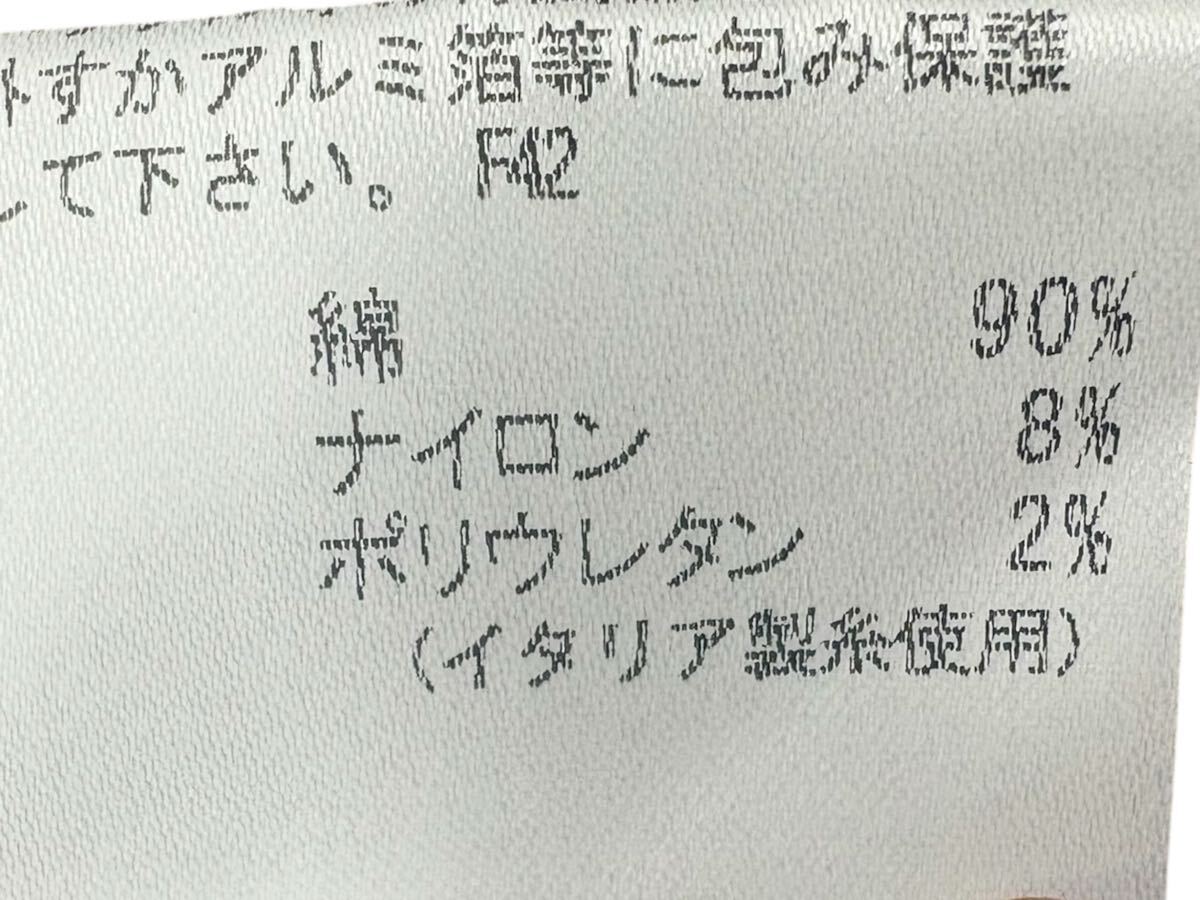 外すかアルミ箔等に包み保護
して下さい。 F42
綿 90%
ナイロン 8%
ポリウレタン 2%
(イタリア製糸使用)